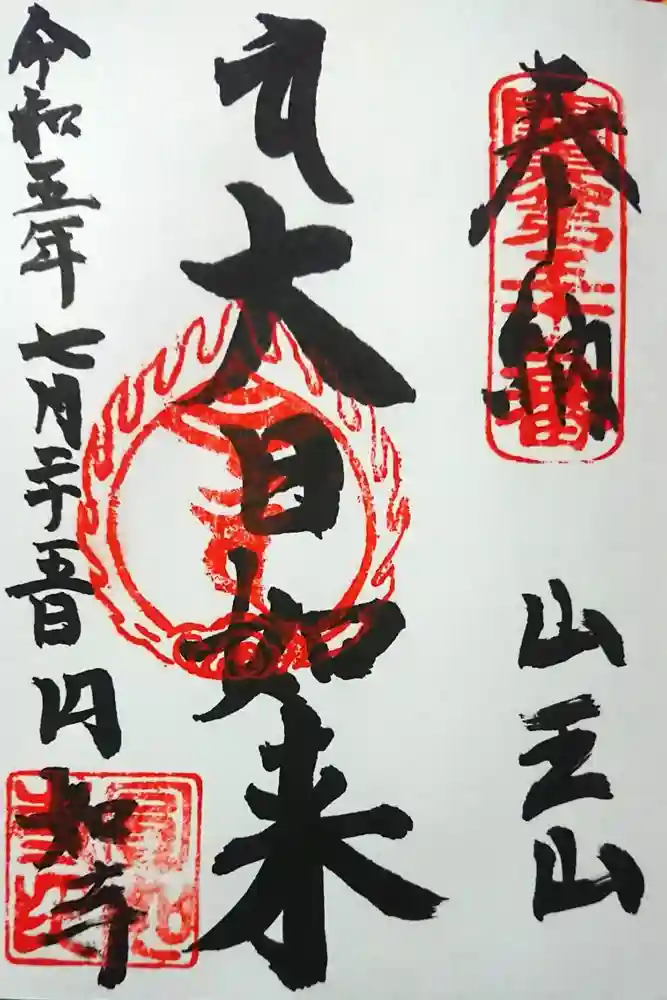 奉納
山王山
大日如来
令和五年七月二十五日
円如寺